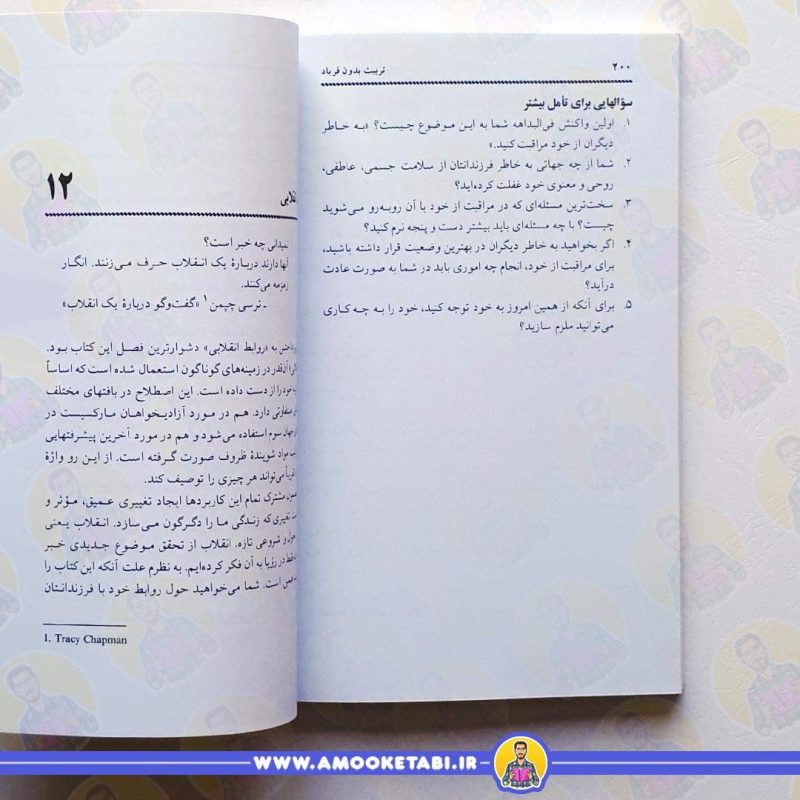 ۲۰۰
تربیت بدون فریاد
سؤالهایی برای تأمل بیشتر
۱. اولین واکنش فی‌البداهه شما به این موضوع چیست؟ «به خاطر
دیگران از خود مراقبت کنید.»
۲. شما از چه جهاتی به خاطر فرزندانتان از سلامت جسمی، عاطفی،
روحی و معنوی خود غفلت کرده‌اید؟
۳. سخت‌ترین مسئله‌ای که در مراقبت از خود با آن روبه‌رو می‌شوید
چیست؟ با چه مسئله‌ای باید بیشتر دست و پنجه نرم کنید؟
۴. اگر بخواهید به خاطر دیگران در بهترین وضعیت قرار داشته باشید،
برای مراقبت از خود، انجام چه اموری باید در شما به صورت عادت
درآید؟
۵. برای آنکه از همین امروز به خود توجه کنید، خود را به چه کاری
می‌توانید ملزم سازید؟
۱۲
نمیدانی چه خبر است؟
آنها دارند دربارهٔ یک انقلاب حرف می‌زنند. انگار
زمزمه می‌کنند.
ـ ترسی چپمن۱ «گفت‌وگو دربارهٔ یک انقلاب»
به «روابط انقلابی» دشوارترین فصل این کتاب بود.
آنقدر در زمینه‌های گوناگون استعمال شده است که اساساً
خود را از دست داده است. این اصطلاح در بافتهای مختلف
متفاوتی دارد. هم در مورد آزادیخواهان مارکسیست در
جهان سوم استفاده می‌شود و هم در مورد آخرین پیشرفتهایی
مواد شویندهٔ ظروف صورت گرفته است. از این رو واژهٔ
تقریباً می‌تواند هر چیزی را توصیف کند.
مشترک تمام این کاربردها ایجاد تغییری عمیق، مؤثر و
تغییری که زندگی ما را دگرگون می‌سازد. انقلاب یعنی
و شروعی تازه. انقلاب از تحقق موضوع جدیدی خبر
فقط در رؤیا به آن فکر کرده‌ایم. به نظرم علت آنکه این کتاب را
است. شما می‌خواهید حول روابط خود با فرزندانتان
1. Tracy Chapman
WWW.AMOOKETABI.IR